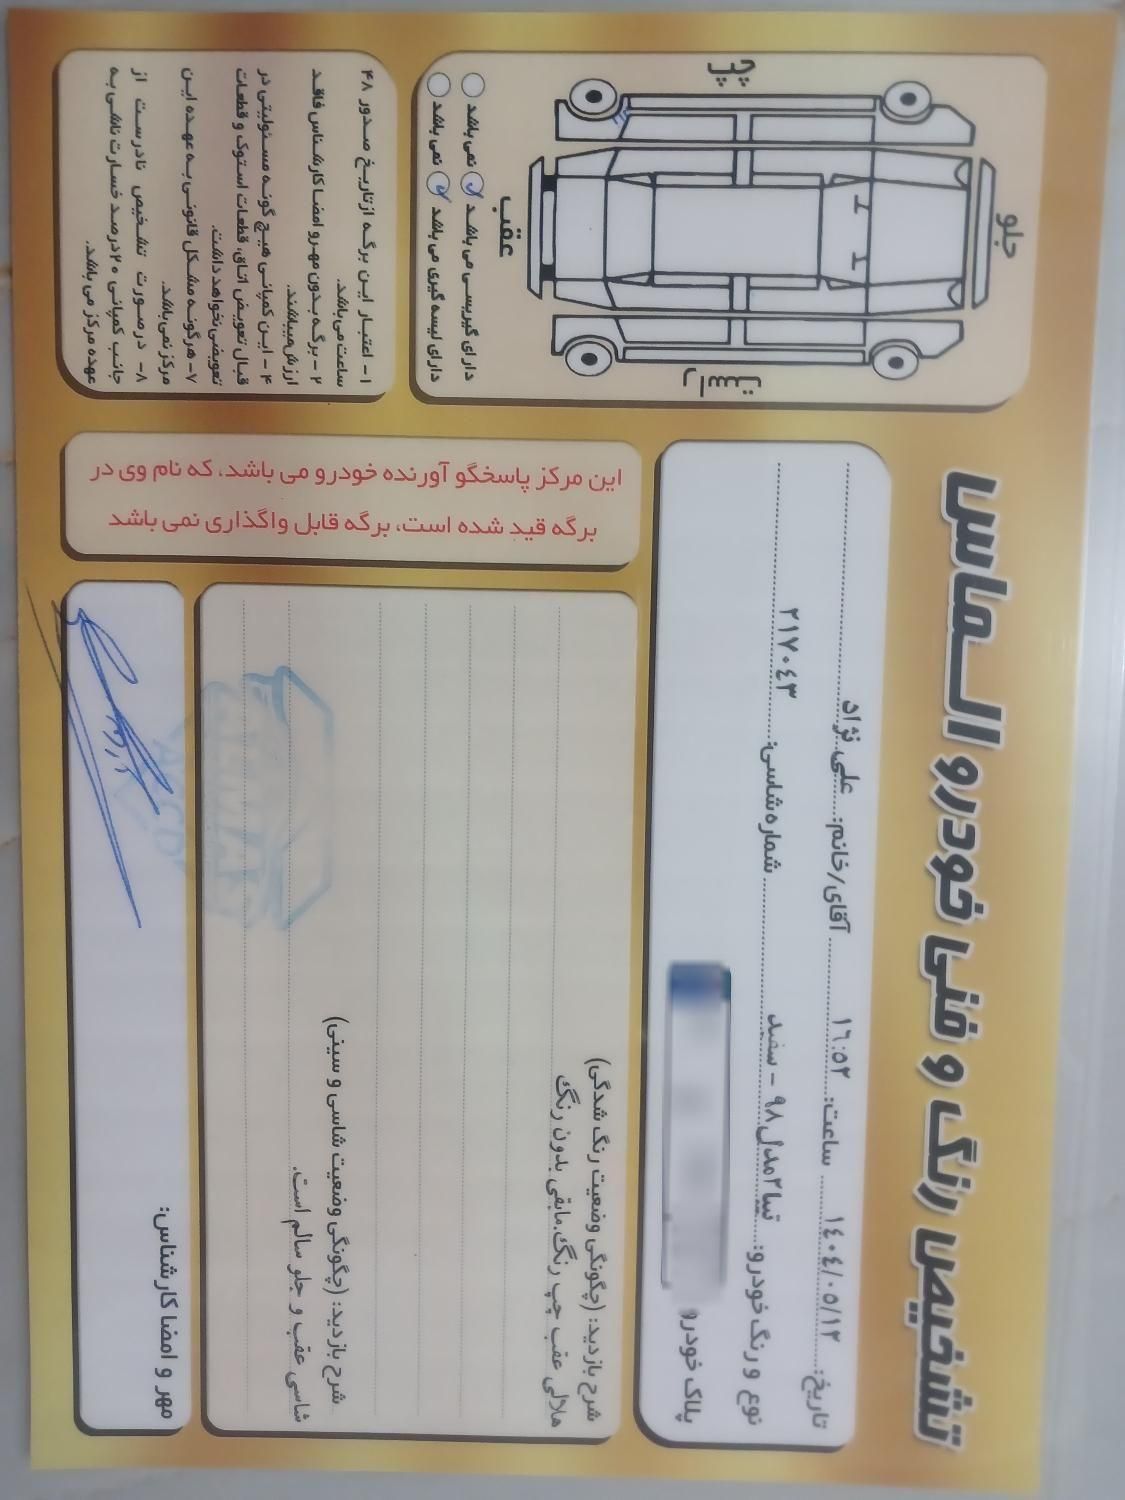 تشخیص رنگ و فنی خودرو الـماس
تاریخ: ۱۴۰۴/۰۵/۱۲ ساعت: ۱۶:۵۲ آقای/خانم: علی نژاد
نوع و رنگ خودرو: تیبا۲مدل ۹۸ - سفید شماره شاسی: ۲۱۷۰۴۳
پلاک خودرو
جلو
چپ
راست
عقب
دارای گیربسی می باشد نمی باشد
دارای لیسه گیری می باشد نمی باشد
شرح بازدید: (چگونگی وضعیت رنگ شدگی)
هلالی عقب چپ رنگ.مابقی بدون رنگ
شرح بازدید: (چگونگی وضعیت شاسی و سینی)
شاسی عقب و جلو سالم است.
این مرکز پاسخگو آورنده خودرو می باشد، که نام وی در
برگه قید شده است، برگه قابل واگذاری نمی باشد
۱- اعتبار این برگه از تاریخ صدور ۴۸
ساعت می باشد.
۲- برگه بدون مهر و امضا کارشناس فاقد
ارزش میباشند.
۴- این کمپانی هیچ گونه مسئولیتی در
قبال تعویض اتاق، قطعات استوک و قطعات
تعویضی نخواهد داشت.
۷- هرگونه مشکل قانونی به عهده این
مرکز نمی باشد.
۸- درصورت تشخیص نادرست از
جانب کمپانی ۲۰درصد خسارت ناشی به
عهده مرکز می باشد.
مهر و امضا کارشناس: